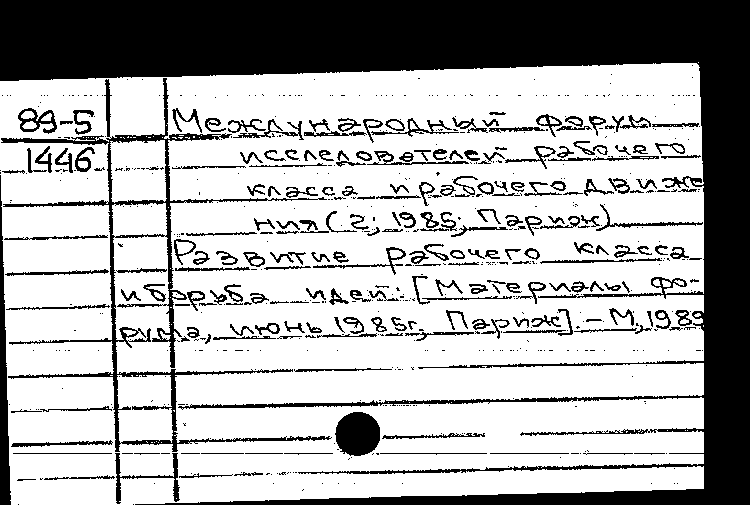 89-5 Международный форум
1446 исследователей рабочего
класса и рабочего движе
ния (2; 1985; Париж)
Развитие рабочего класса
и борьба идей: [Материалы фо-
рума, июнь 1985г, Париж]. – М, 1989